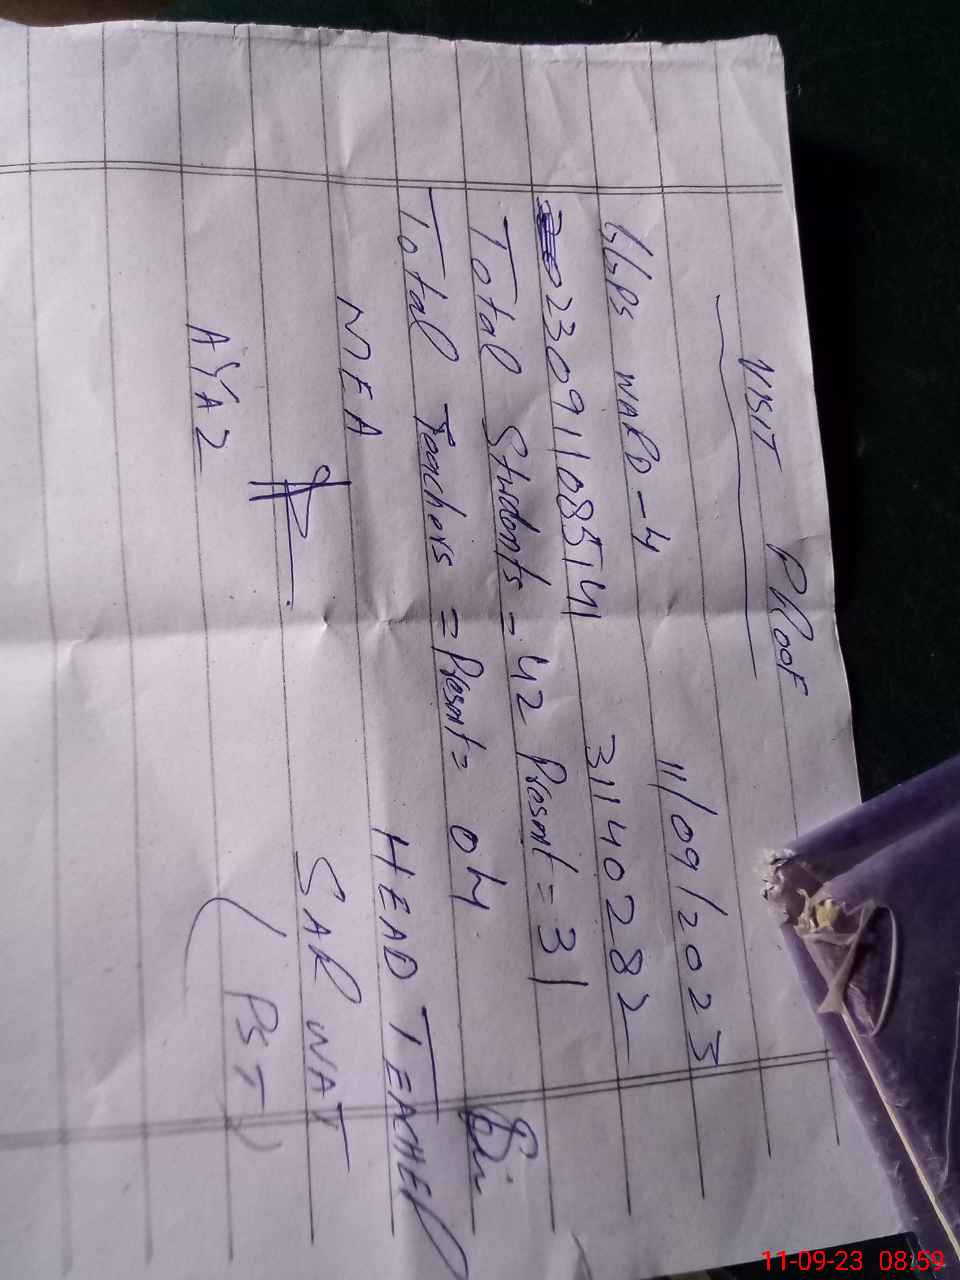 VISIT PROOF
11/09/2023
GGPS WARD-4 31140282
23091108514
Total Students - 42 Present = 31
Total Teachers = Present = 04
MEA HEAD TEACHER
SARWAT
AYAZ (PST)
11-09-23 08:59